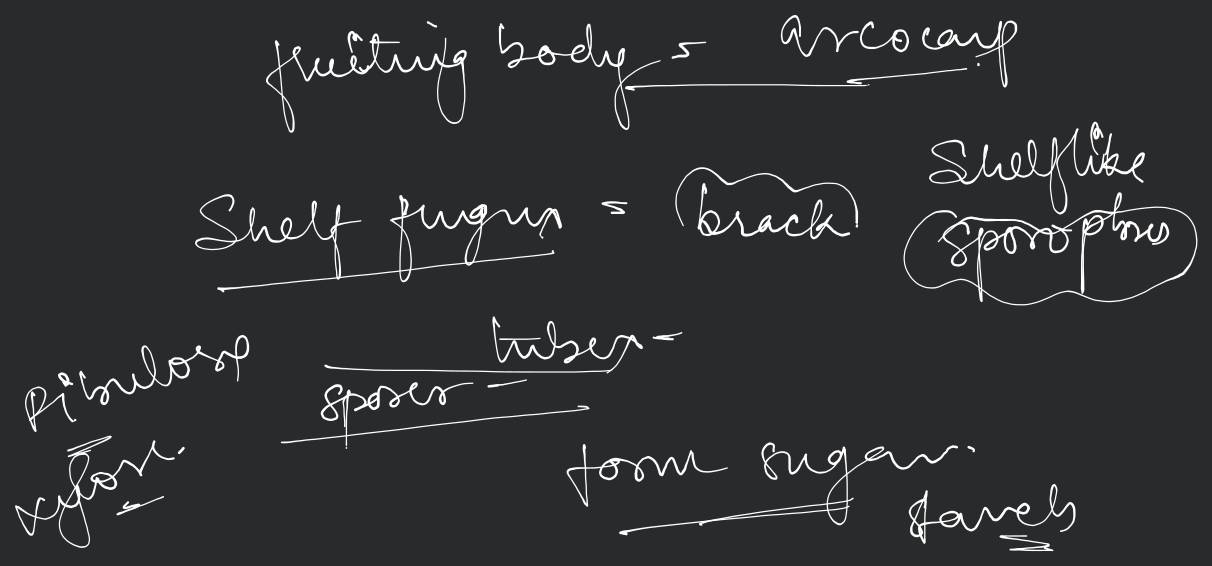 fruiting body = ascocarp
Shelf fungus = brack
Shelflike
sporophores
tubes -
spores -
Ribulose
xylose.
form sugar.
starch